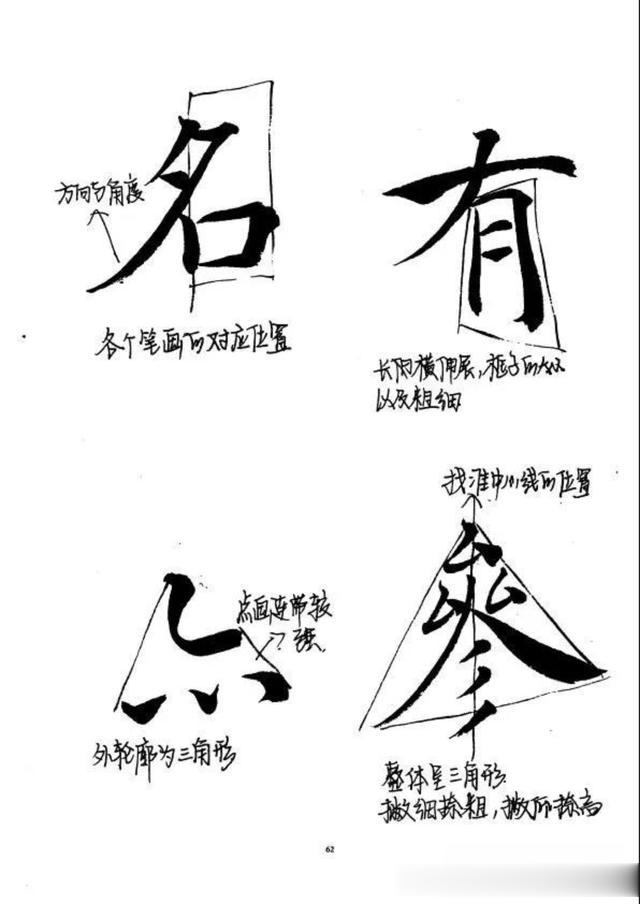 名
方向与角度
各个笔画的对应位置
有
横伸展，框子的大小
以及粗细
点画连带较
强
外轮廓为三角形
找准中心线的位置
參
整体呈三角形
撇细捺粗，撇低捺高
62